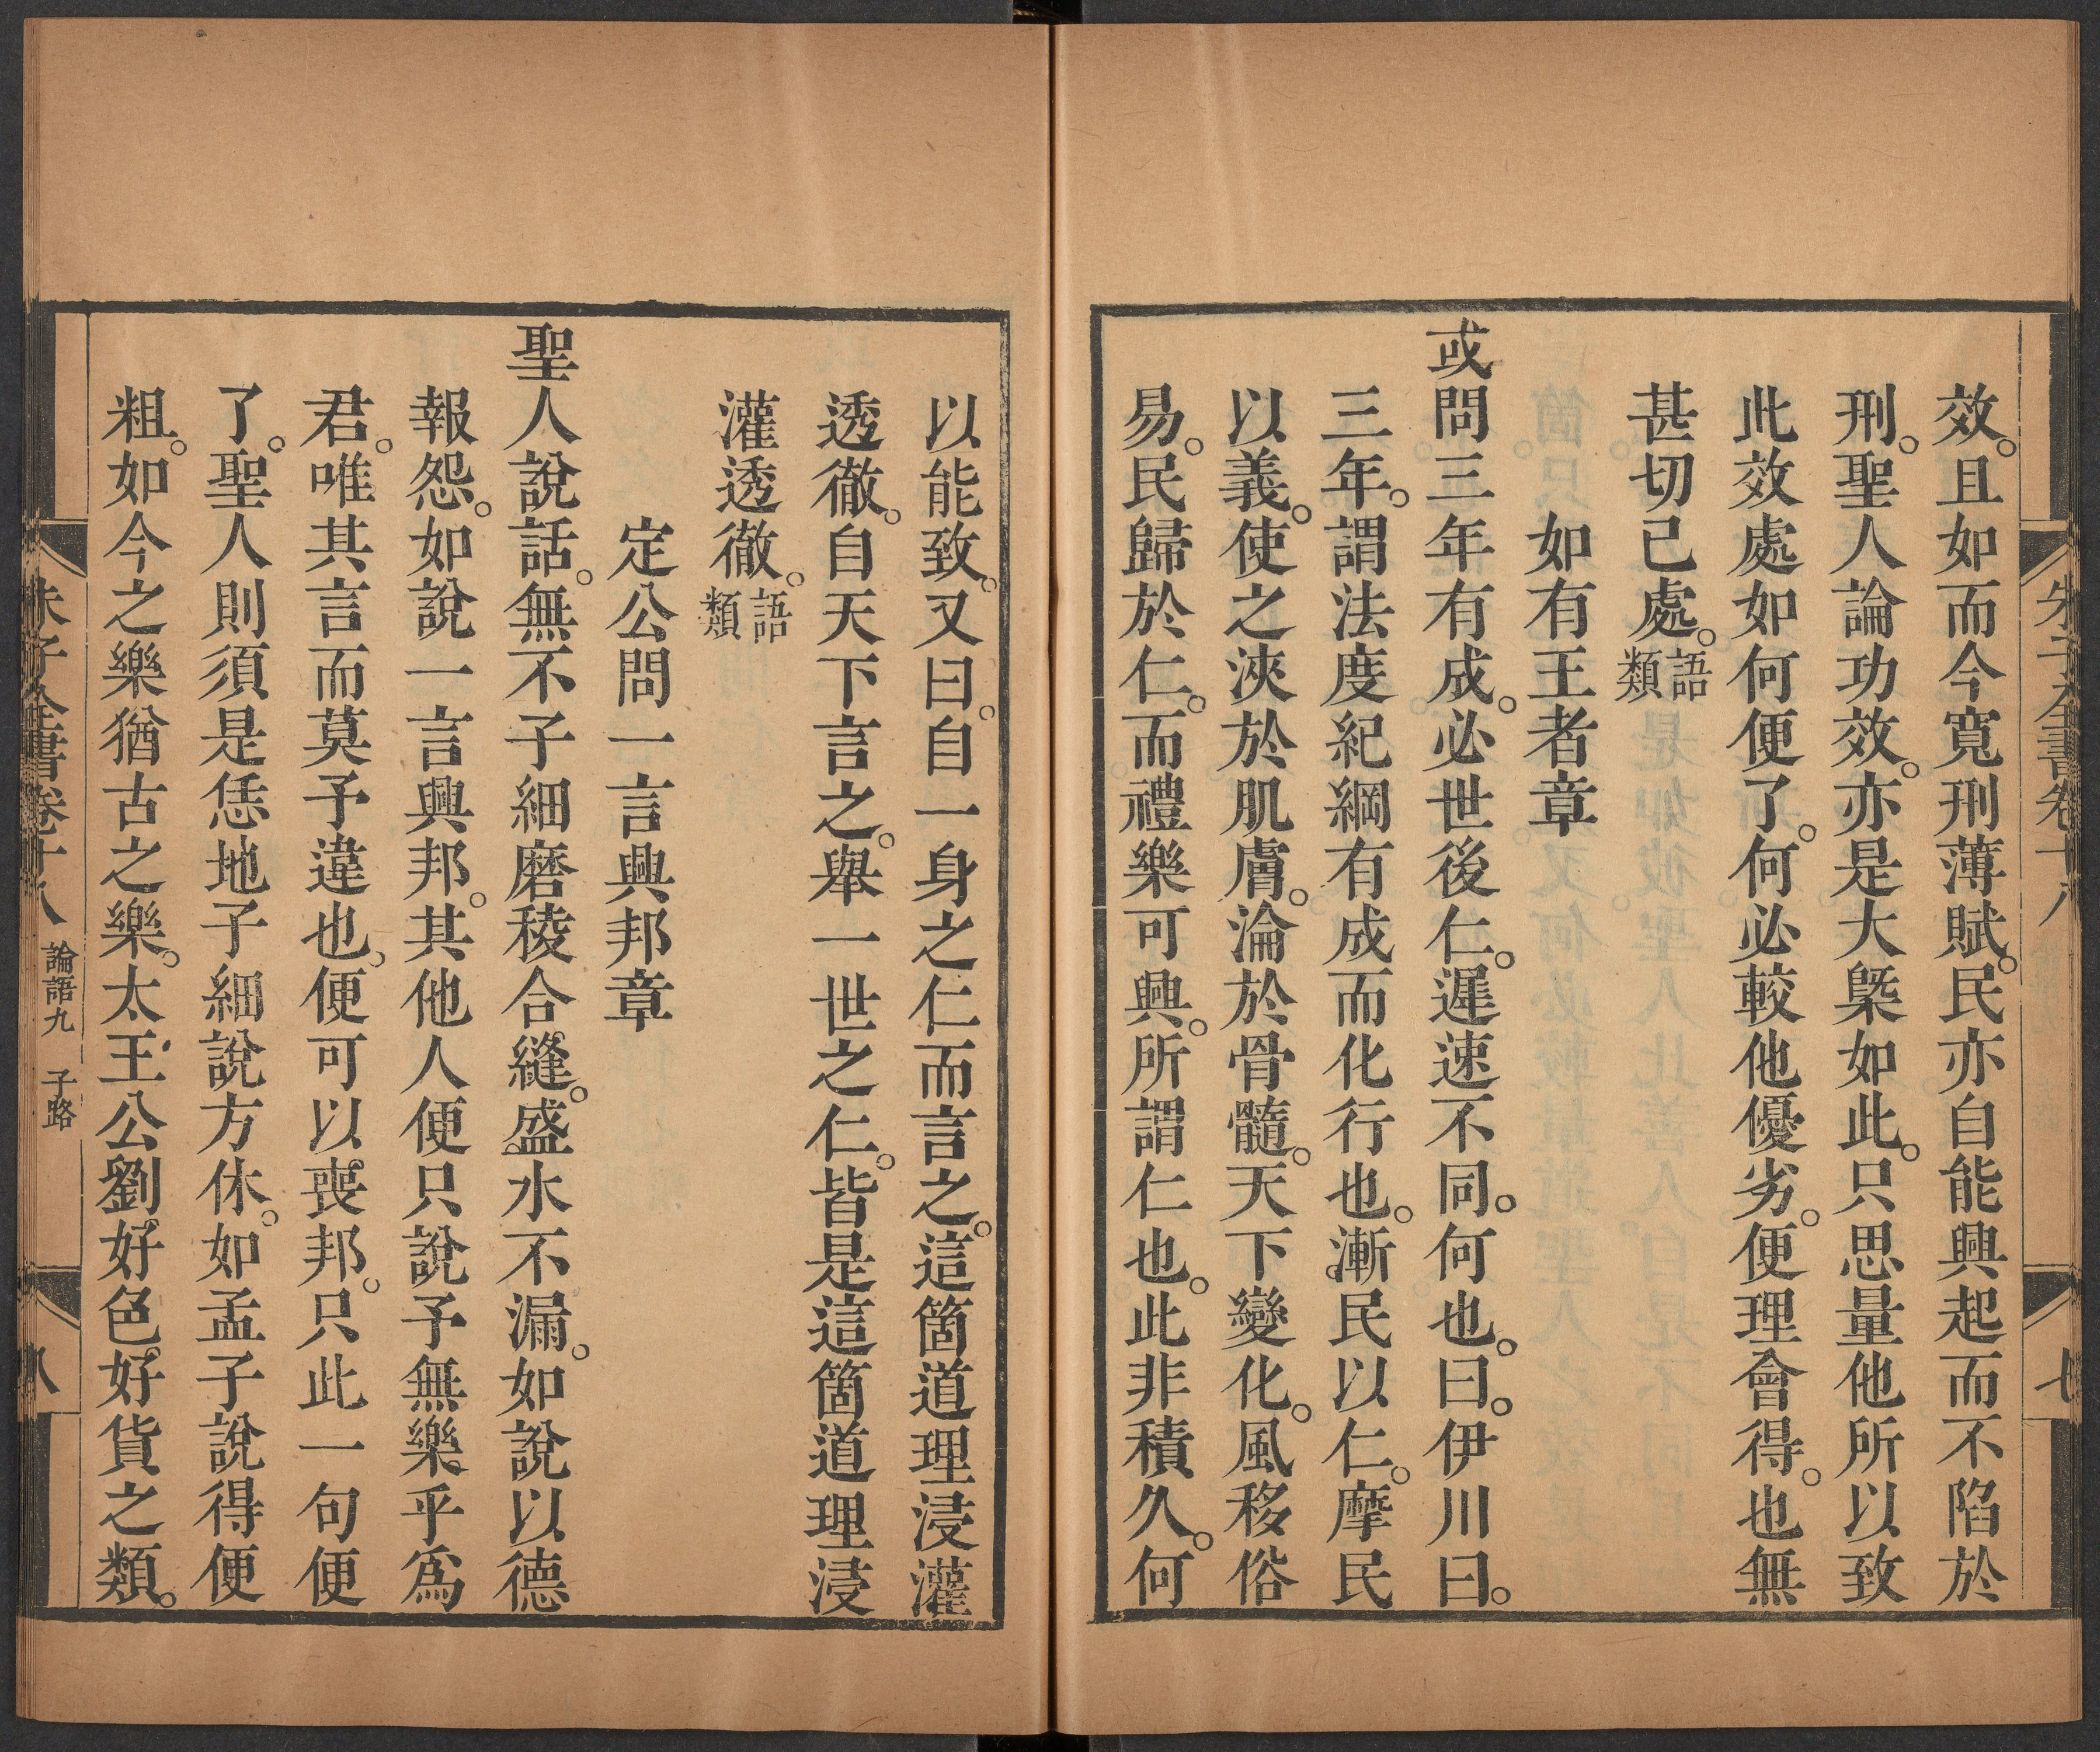 效。且如而今寬刑薄賦。民亦自能興起而不陷於
刑。聖人論功效。亦是大槩如此。只思量他所以致
此效處如何便了。何必較他優劣。便理會得。也無
甚切己處。語類
如有王者章
或問三年有成。必世後仁。遲速不同。何也。曰。伊川曰。
三年。謂法度紀綱有成而化行也。漸民以仁。摩民
以義。使之浹於肌膚。淪於骨髓。天下變化。風移俗
易。民歸於仁。而禮樂可興。所謂仁也。此非積久。何
以能致。又曰。自一身之仁而言之。這箇道理浸灌
透徹。自天下言之。舉一世之仁。皆是這箇道理浸
灌透徹。語類
定公問一言興邦章
聖人說話。無不子細磨稜合縫。盛水不漏。如說以德
報怨。如說一言興邦。其他人便只說予無樂乎爲
君。唯其言而莫予違也。便可以喪邦。只此一句便
了。聖人則須是恁地子細說方休。如孟子說得便
粗。如今之樂猶古之樂。太王公劉好色好貨之類。
朱子全書卷十八 論語九 子路 八